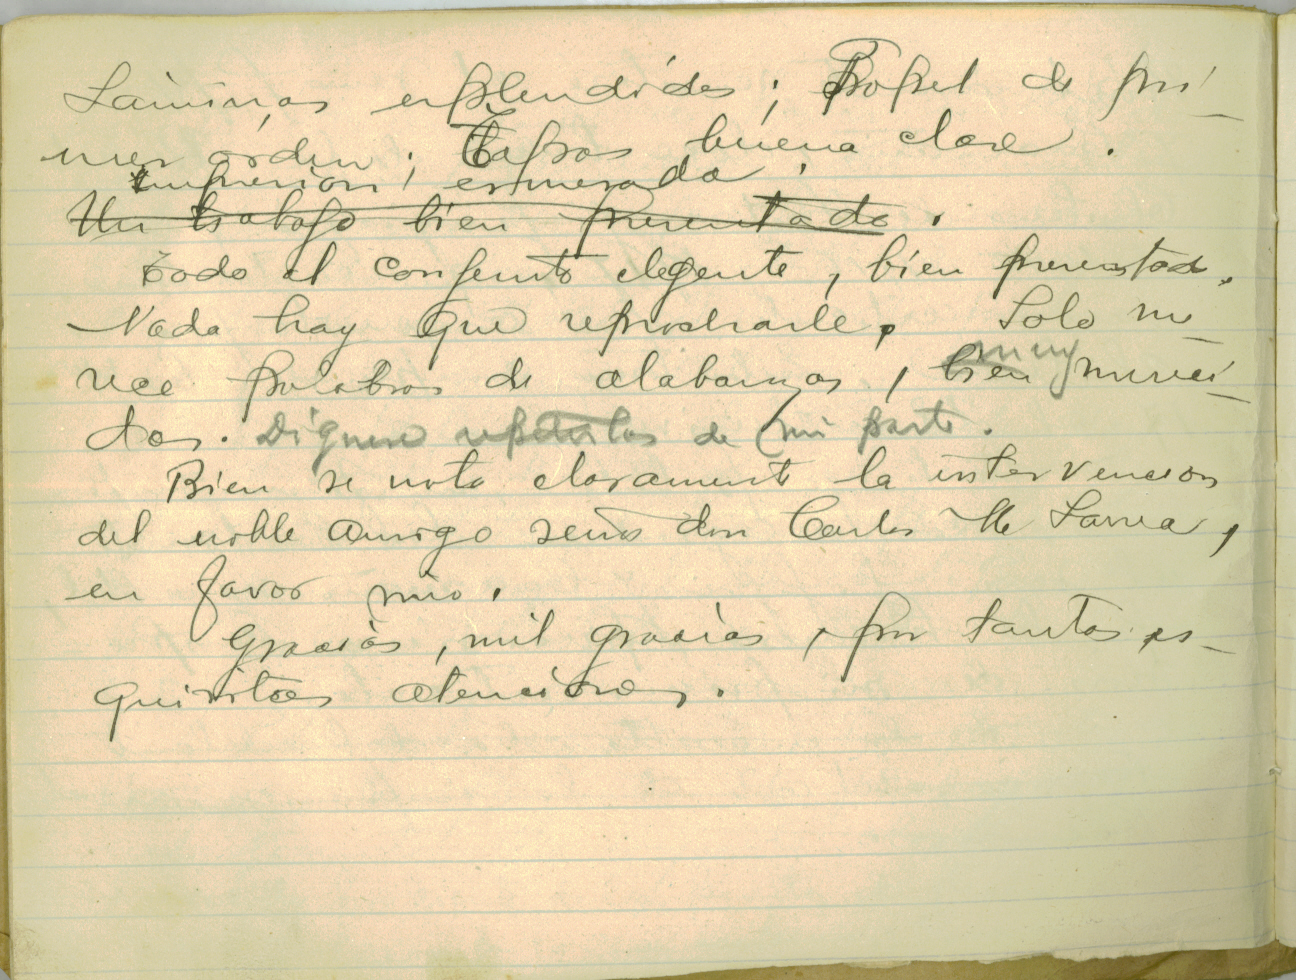 Láminas esplendidas; Papel de pri-
mer orden; Tapas buena clase.
impresion, esmerada,
Un trabajo bien presentado.
todo el conjunto elegente, bien presentado.
Nada hay que reprocharle. Solo me-
rece palabras de alabanzas, bien muy mereci-
das. Dignese repetirlas de mi parte.
Bien se nota claramente la intervencion
del noble amigo señor don Carlos M Larrea,
en favor mio.
Gracias, mil gracias, por tantas es-
quisitas atenciones.